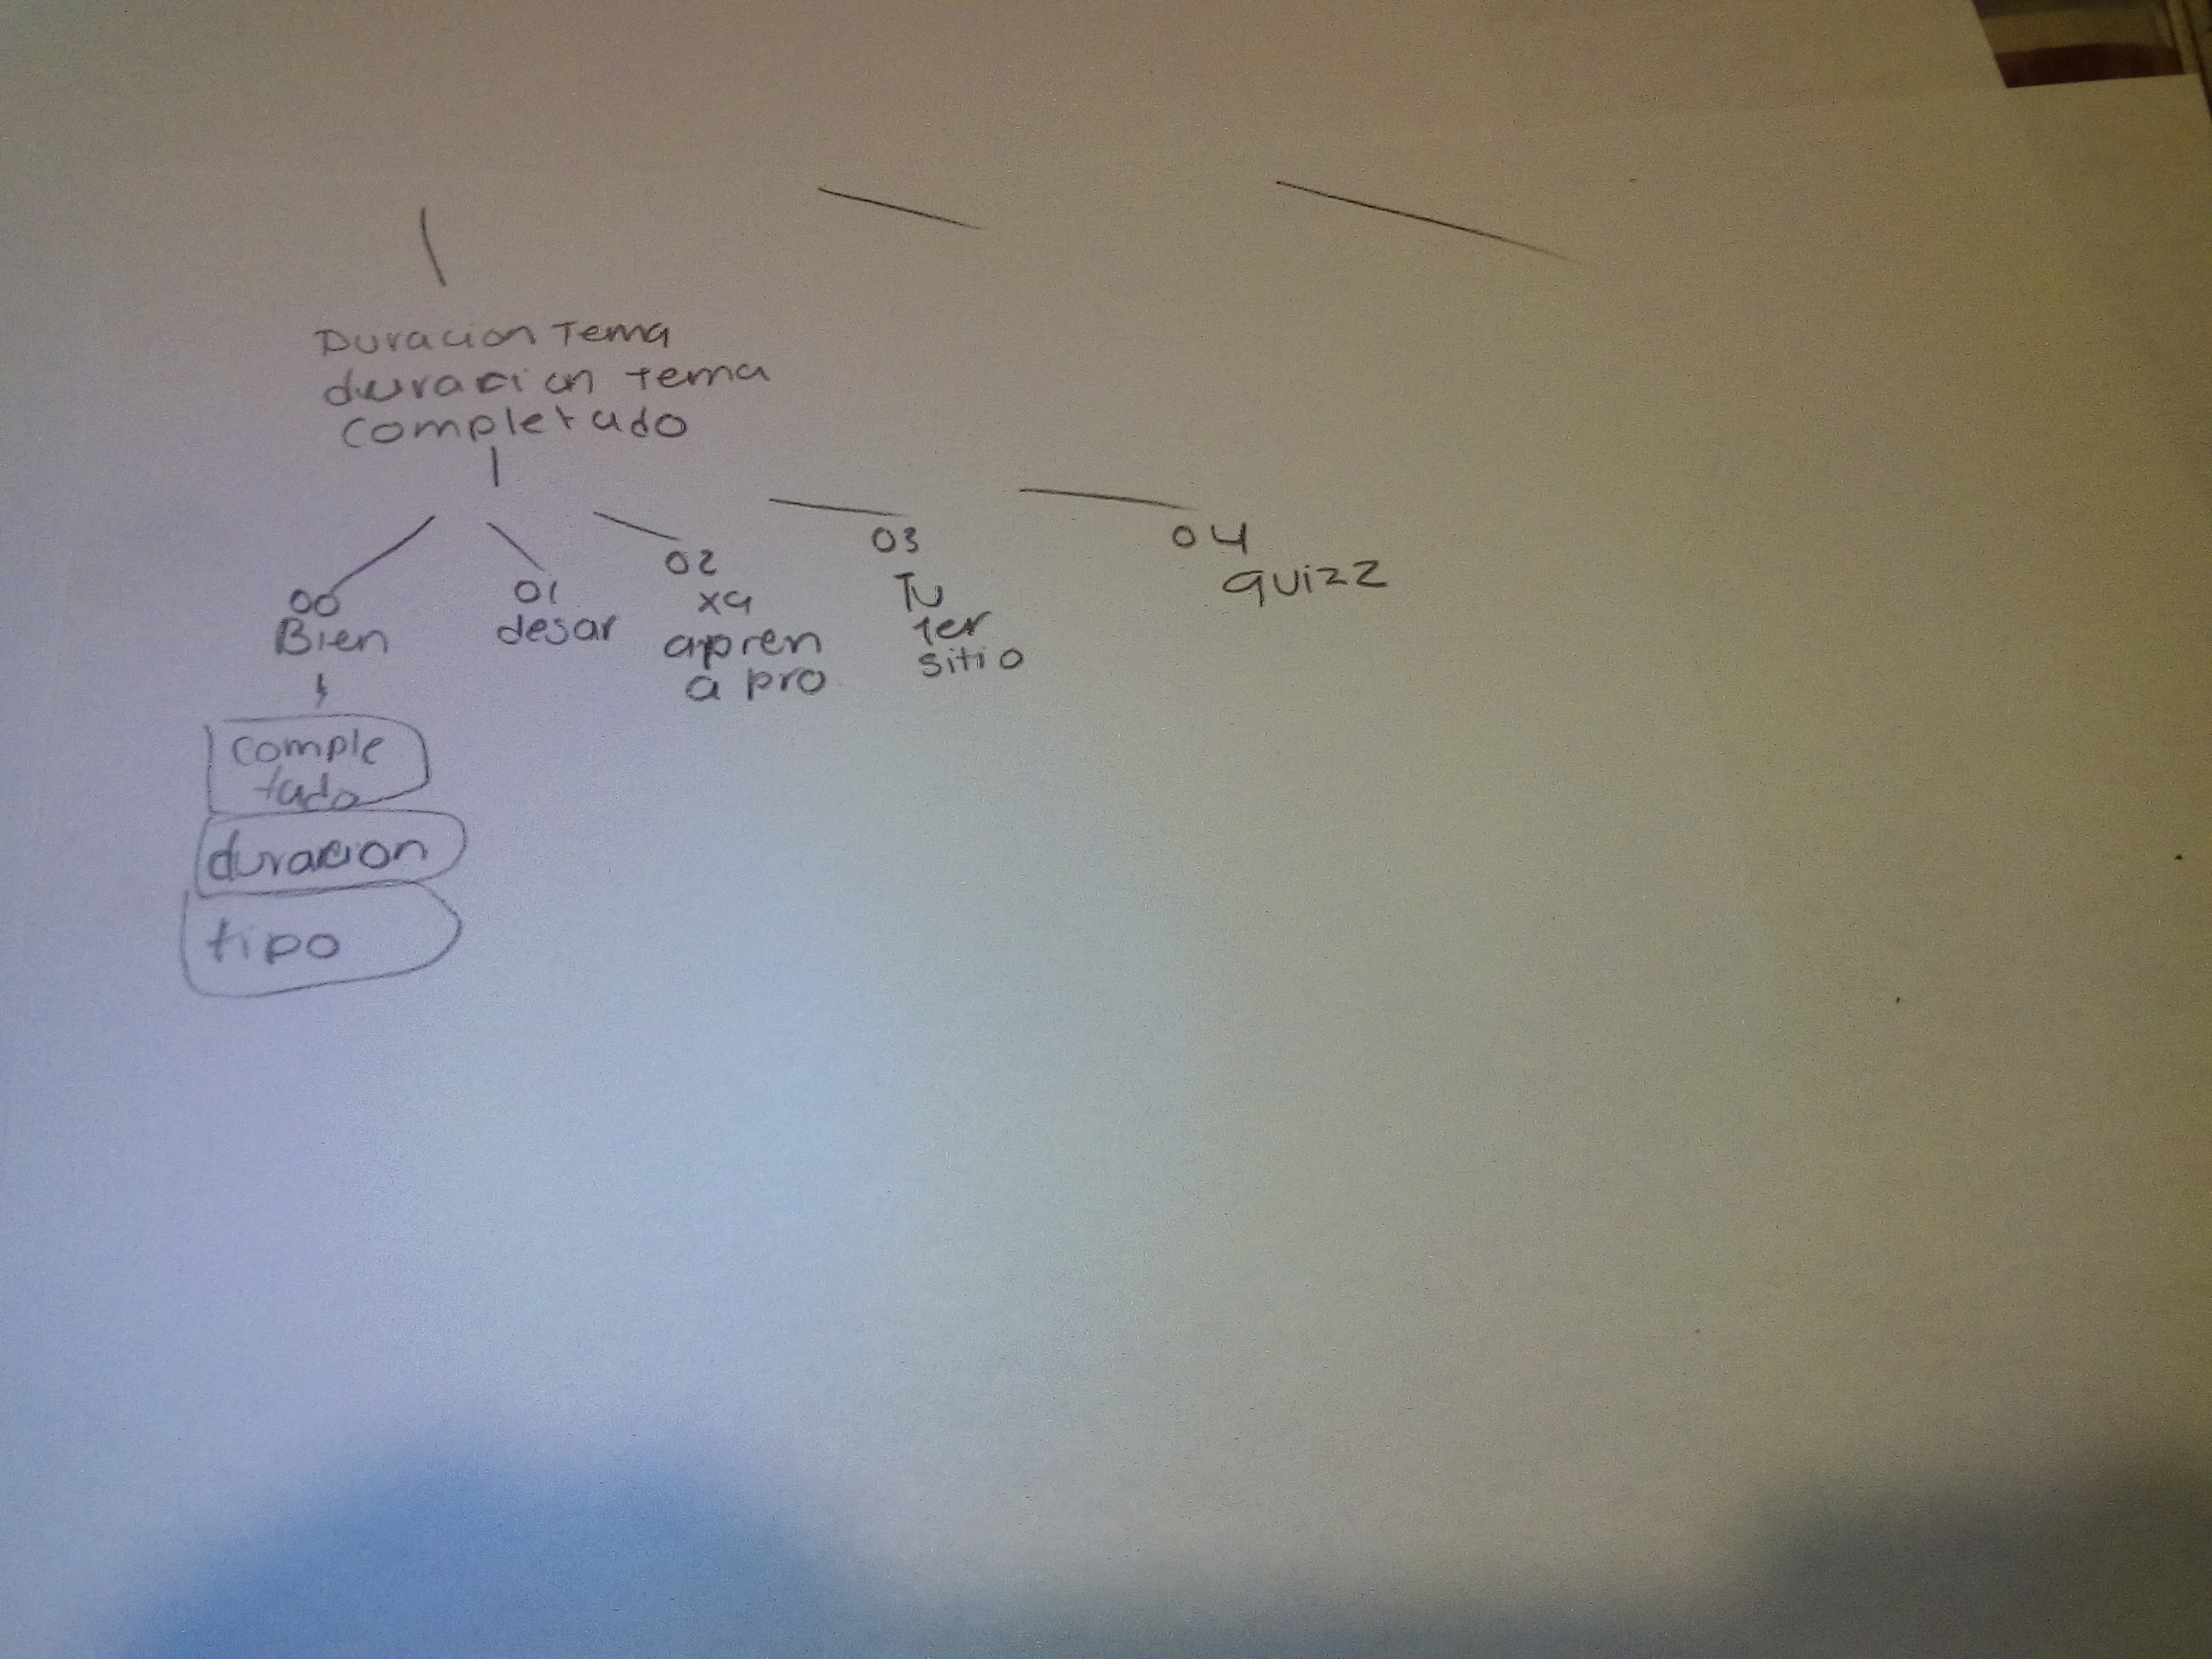 Duracion Tema
duracion tema
completado
00
Bien
01
desar
02
xa
apren
a pro
03
Tu
1er
sitio
04
quizz
comple
tado
duracion
tipo